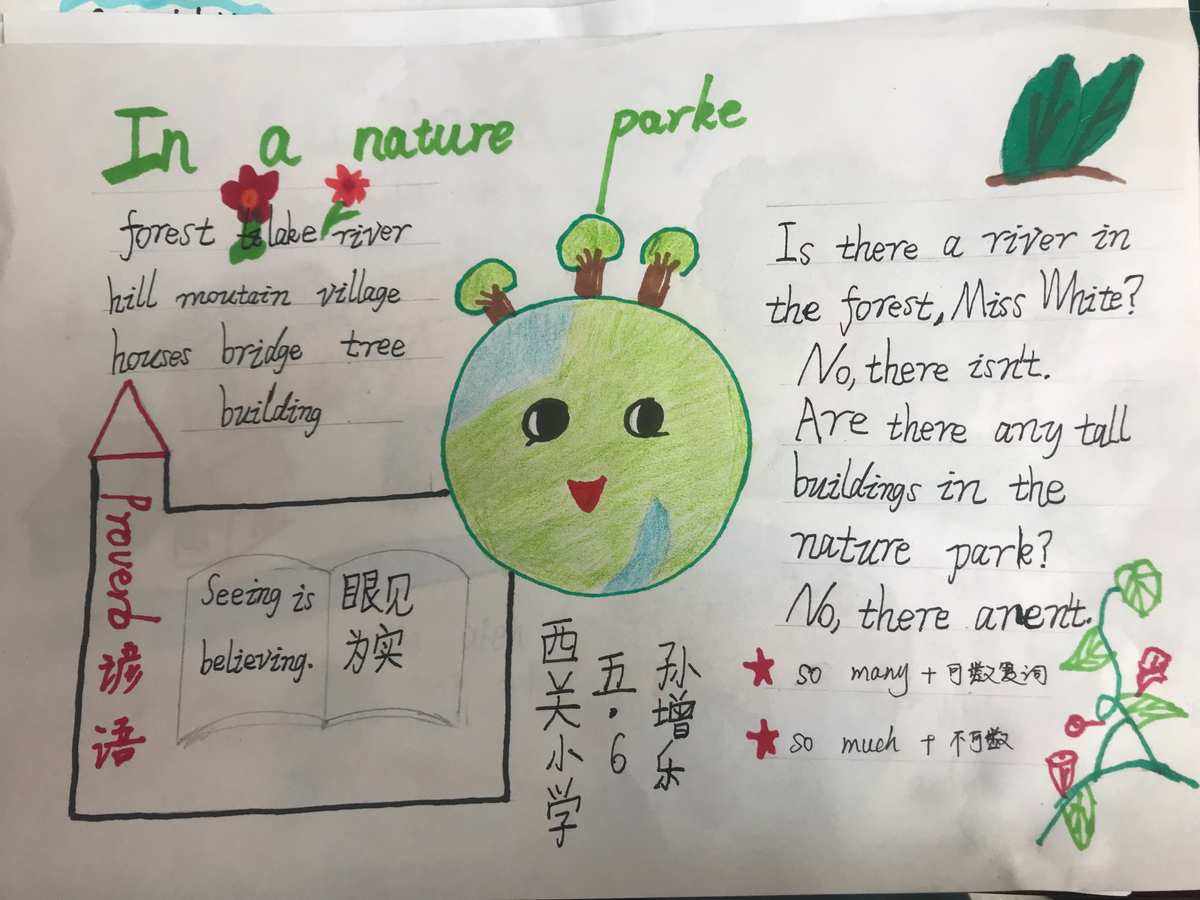 In a nature parke
forest lake river
hill moutain village
houses bridge tree
building
Proverb 谚语
Seeing is
believing.
眼见
为实
Is there a river in
the forest, Miss White?
No, there isn't.
Are there any tall
buildings in the
nature park?
No, there aren't.
★ so many + 可数复词
★ so much + 不可数
西关小学
五·6
孙增乐